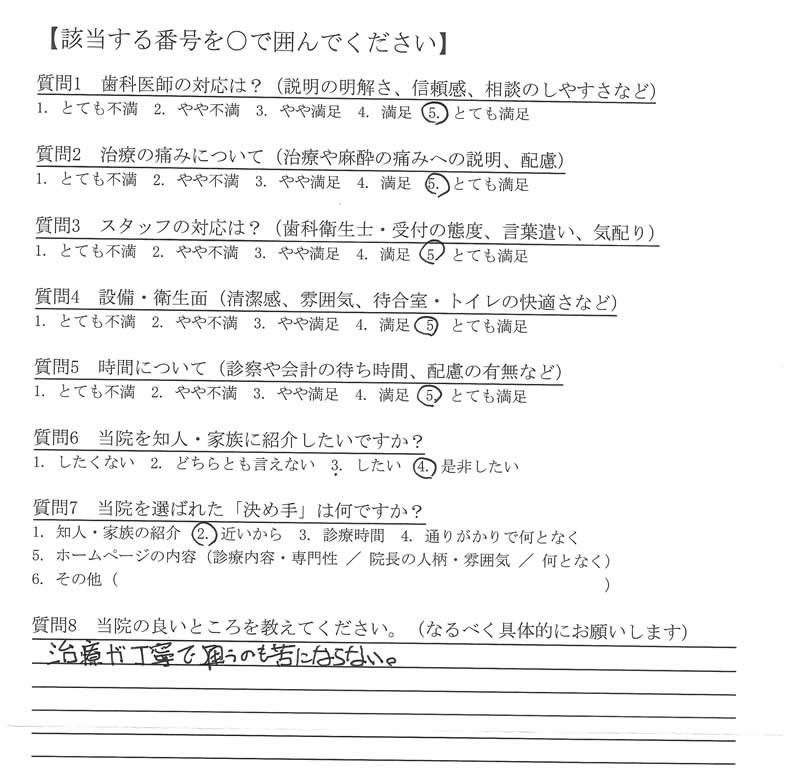 【該当する番号を〇で囲んでください】
質問1　歯科医師の対応は？（説明の明解さ、信頼感、相談のしやすさなど）
1. とても不満　2. やや不満　3. やや満足　4. 満足　5. とても満足
質問2　治療の痛みについて（治療や麻酔の痛みへの説明、配慮）
1. とても不満　2. やや不満　3. やや満足　4. 満足　5. とても満足
質問3　スタッフの対応は？（歯科衛生士・受付の態度、言葉遣い、気配り）
1. とても不満　2. やや不満　3. やや満足　4. 満足　5. とても満足
質問4　設備・衛生面（清潔感、雰囲気、待合室・トイレの快適さなど）
1. とても不満　2. やや不満　3. やや満足　4. 満足　5 とても満足
質問5　時間について（診察や会計の待ち時間、配慮の有無など）
1. とても不満　2. やや不満　3. やや満足　4. 満足　5. とても満足
質問6　当院を知人・家族に紹介したいですか？
1. したくない　2. どちらとも言えない　3. したい　4. 是非したい
質問7　当院を選ばれた「決め手」は何ですか？
1. 知人・家族の紹介　2. 近いから　3. 診療時間　4. 通りがかりで何となく
5. ホームページの内容（診療内容・専門性 ／ 院長の人柄・雰囲気 ／ 何となく）
6. その他（　　　　　　　　　　）
質問8　当院の良いところを教えてください。（なるべく具体的にお願いします）
治療が丁寧で 通うのも苦にならない。